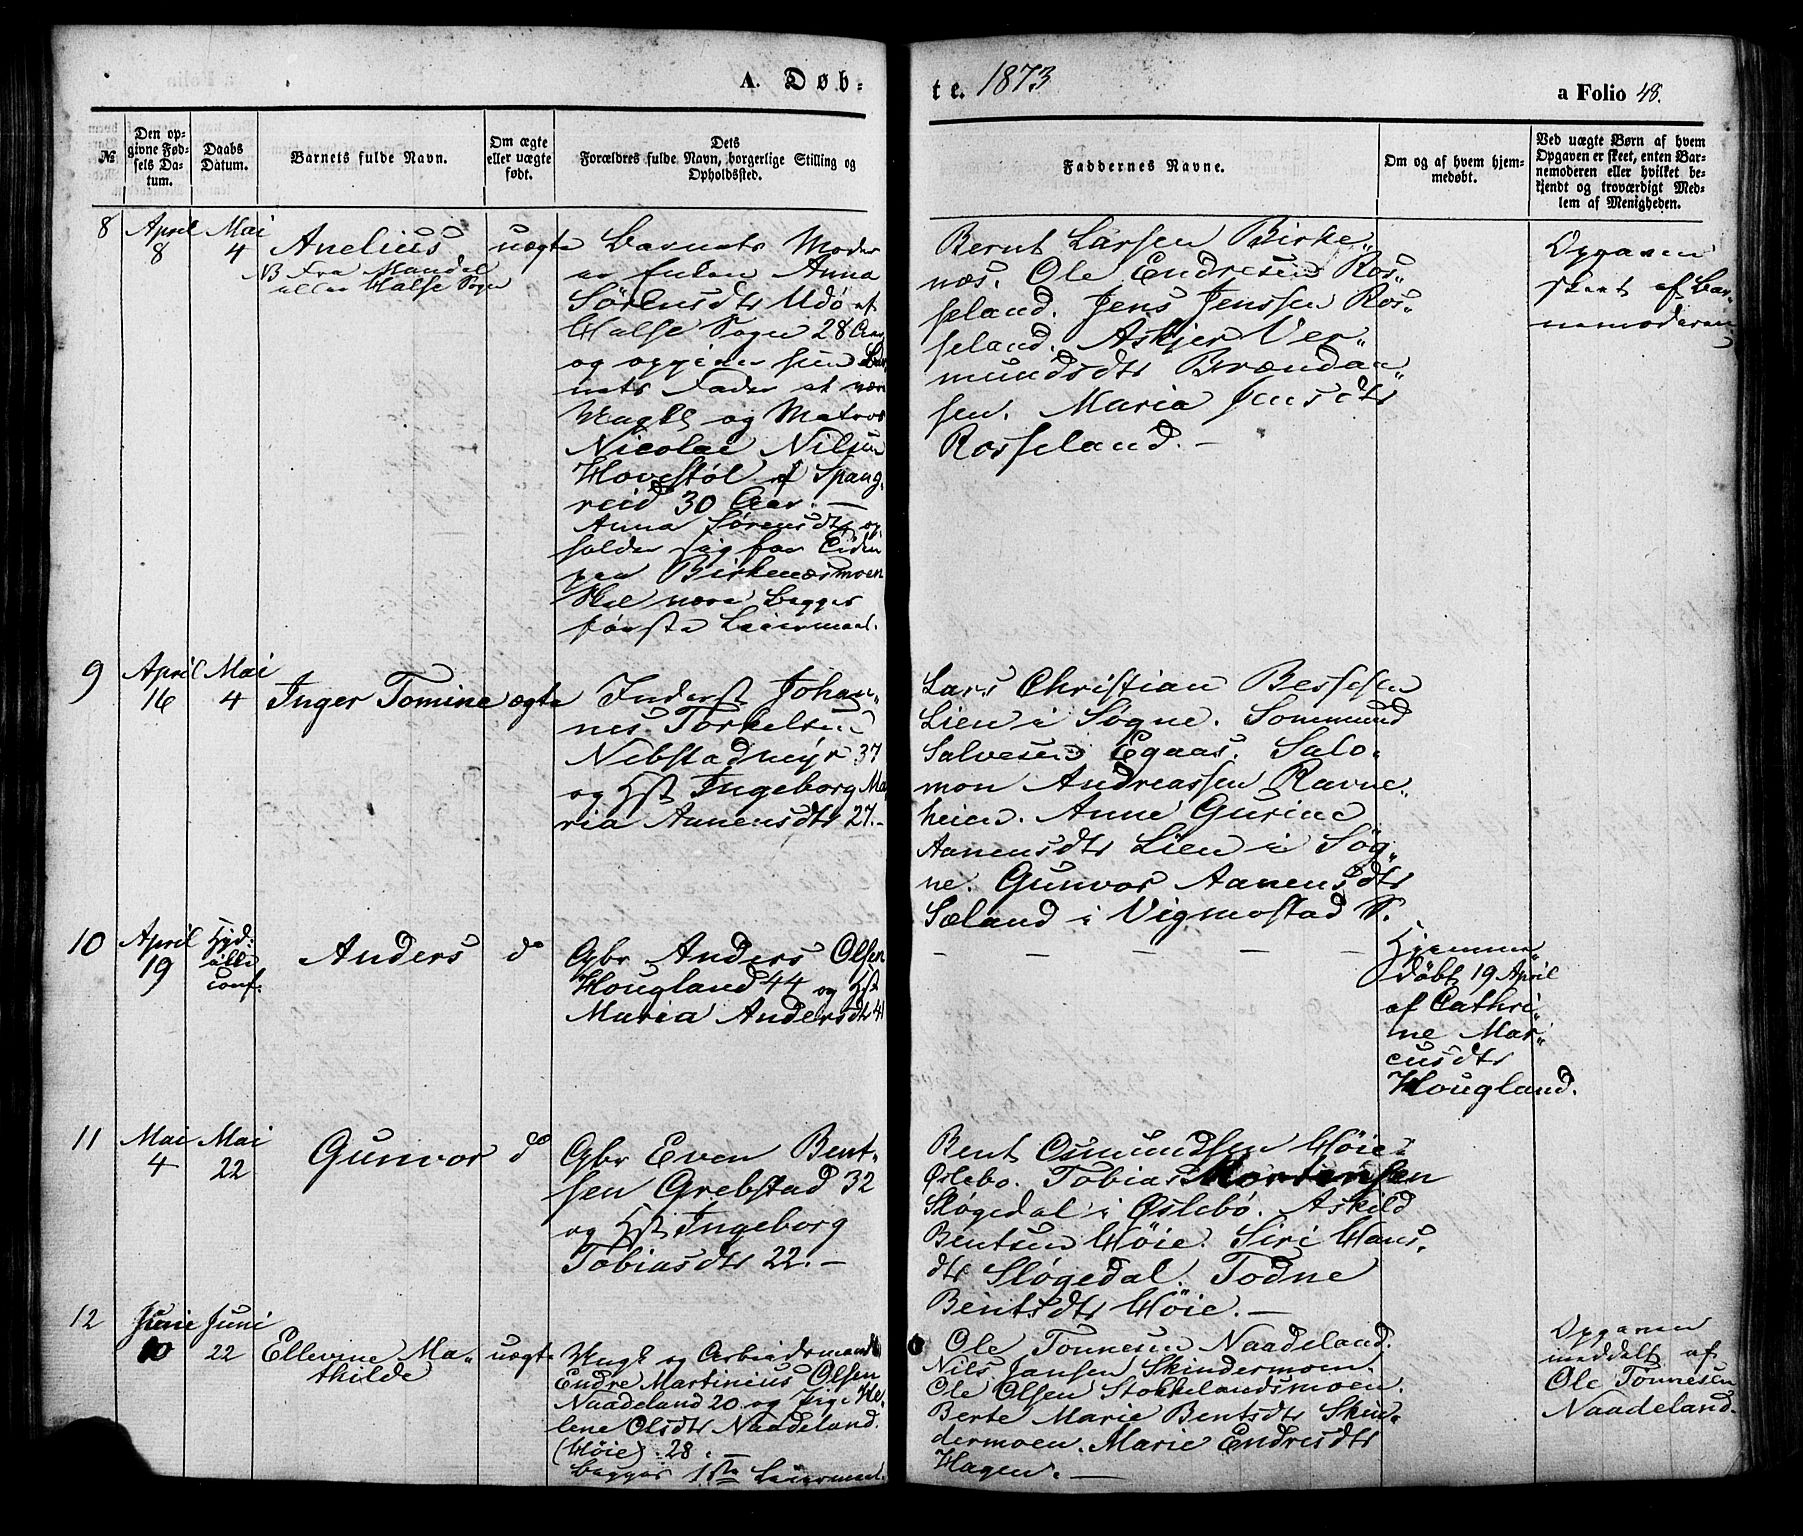 A. Døb-
te. 1873
a Folio 48.
№
Den op-
givne Fød-
sels Da-
tum.
Daabs
Datum.
Barnets fulde Navn.
Om ægte
eller uægte
født.
Dets
Forældres fulde Navn, borgerlige Stilling og
Opholdssted.
Faddernes Navne.
Om og af hvem hjem-
medøbt.
Ved uægte Børn af hvem
Opgaven er skeet, enten Bar-
nemoderen eller hvilket be-
kjendt og troværdigt Med-
lem af Menigheden.
8
April
8
Mai
4
Anelius
NB Fra Mandal
eller Halse Sogn
uægte
Barnets Moder
er Enken Anna
Sørensdtr Udø af
Halse Sogn 28 Aar
og opgiver hun Bar
nets Fader at være
Ungk og Matros
Nicolai Nilsen
Hovestøl af Spang,
reid 30 Aar. —
Anna Sørensdtr op
holder sig for Tiden
paa Birkenæsmoen
Skal være Begges
første Leiermaal.
Bernt Larsen Birke-
næs. Ole Endresen Ros-
seland. Jens Jenssen Ros-
seland. Askjer Ver-
mundsdtr Brændaa-
sen. Maria Jensdtr
Rosseland. —
Opgaven
skeet af Bar-
nemoderen
9
April
16
Mai
4
Inger Tomine
ægte
Inderst Johan-
nes Torkelsen
Nebstadmyr 37
og Hst Ingeborg Ma
ria Aanensdtr 27. -
Lars Christian Bessesen
Lien i Søgne. Sommund
Salvesen Egaas. Salo-
mon Andreassen Ravne-
heien. Anne Gurine
Aanensdtr Lien i Søg-
ne. Gunvor Aanensdtr
Sæland i Vigmostad S.
10
April
19
Anders
do
Gbr Anders Olsen
Hougland 44 og Hst
Maria Andersdtr 41
— — — — —
Hjemme
døbt 19 April
af Cathri-
ne Mar-
cusdtr
Hougland.
11
Mai
4
Mai
22
Gunvor
do
Gbr Even Bent-
sen Grebstad 32
og Hst Ingeborg
Tobiasdtr 22. —
Bent Osmundsen Høie-
Øslebo. Tobias Mortensen
Sløgedal i Øslebø. Askild
Bentsen Høie. Siri Hans-
dtr Sløgedal. Todne
Bentsdtr Høie. —
12
Juni
10
Juni
22
Ellevine Ma-
thilde
uægte
Ungk og Arbeidsmand
Endre Martinius Olsen
Naadeland 20 og Pige He-
lene Olsdtr Naadeland.
(Høie) 28. —
Begges 1ste Leiermaal.
Ole Tonnesen Naadeland.
Nils Jansen Skindermoen
Ole Olsen Stokkelandsmoen.
Berte Marie Bentsdtr Skin-
dermoen. Marie Endresdtr
Hagen. —
Opgaven
meddelt af
Ole Tonnesen
Naadeland.